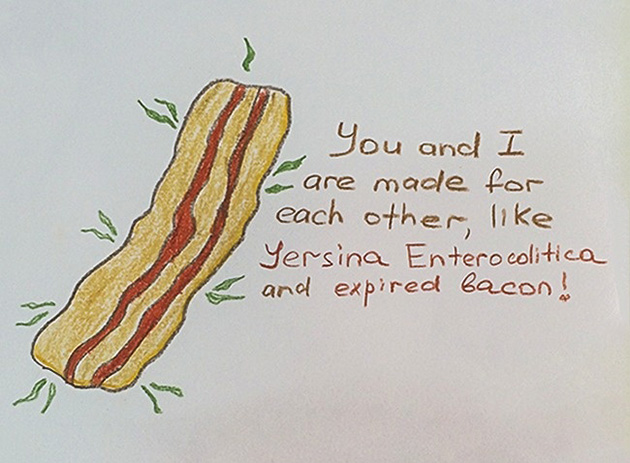 You and I
are made for
each other, like
Yersina Enterocolitica
and expired bacon!